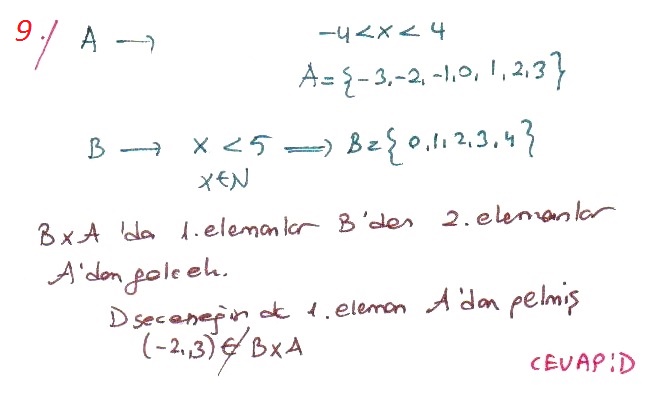 9./ A → -4<x<4
A={-3,-2,-1,0,1,2,3}
B → x<5 ⟹ B={0,1,2,3,4}
x∈N
BxA 'da 1.elemanlar B'den 2.elemanlar
A'dan gelecek.
D seceneğinde 1.eleman A'dan gelmiş
(-2,3)∉BxA
CEVAP:D